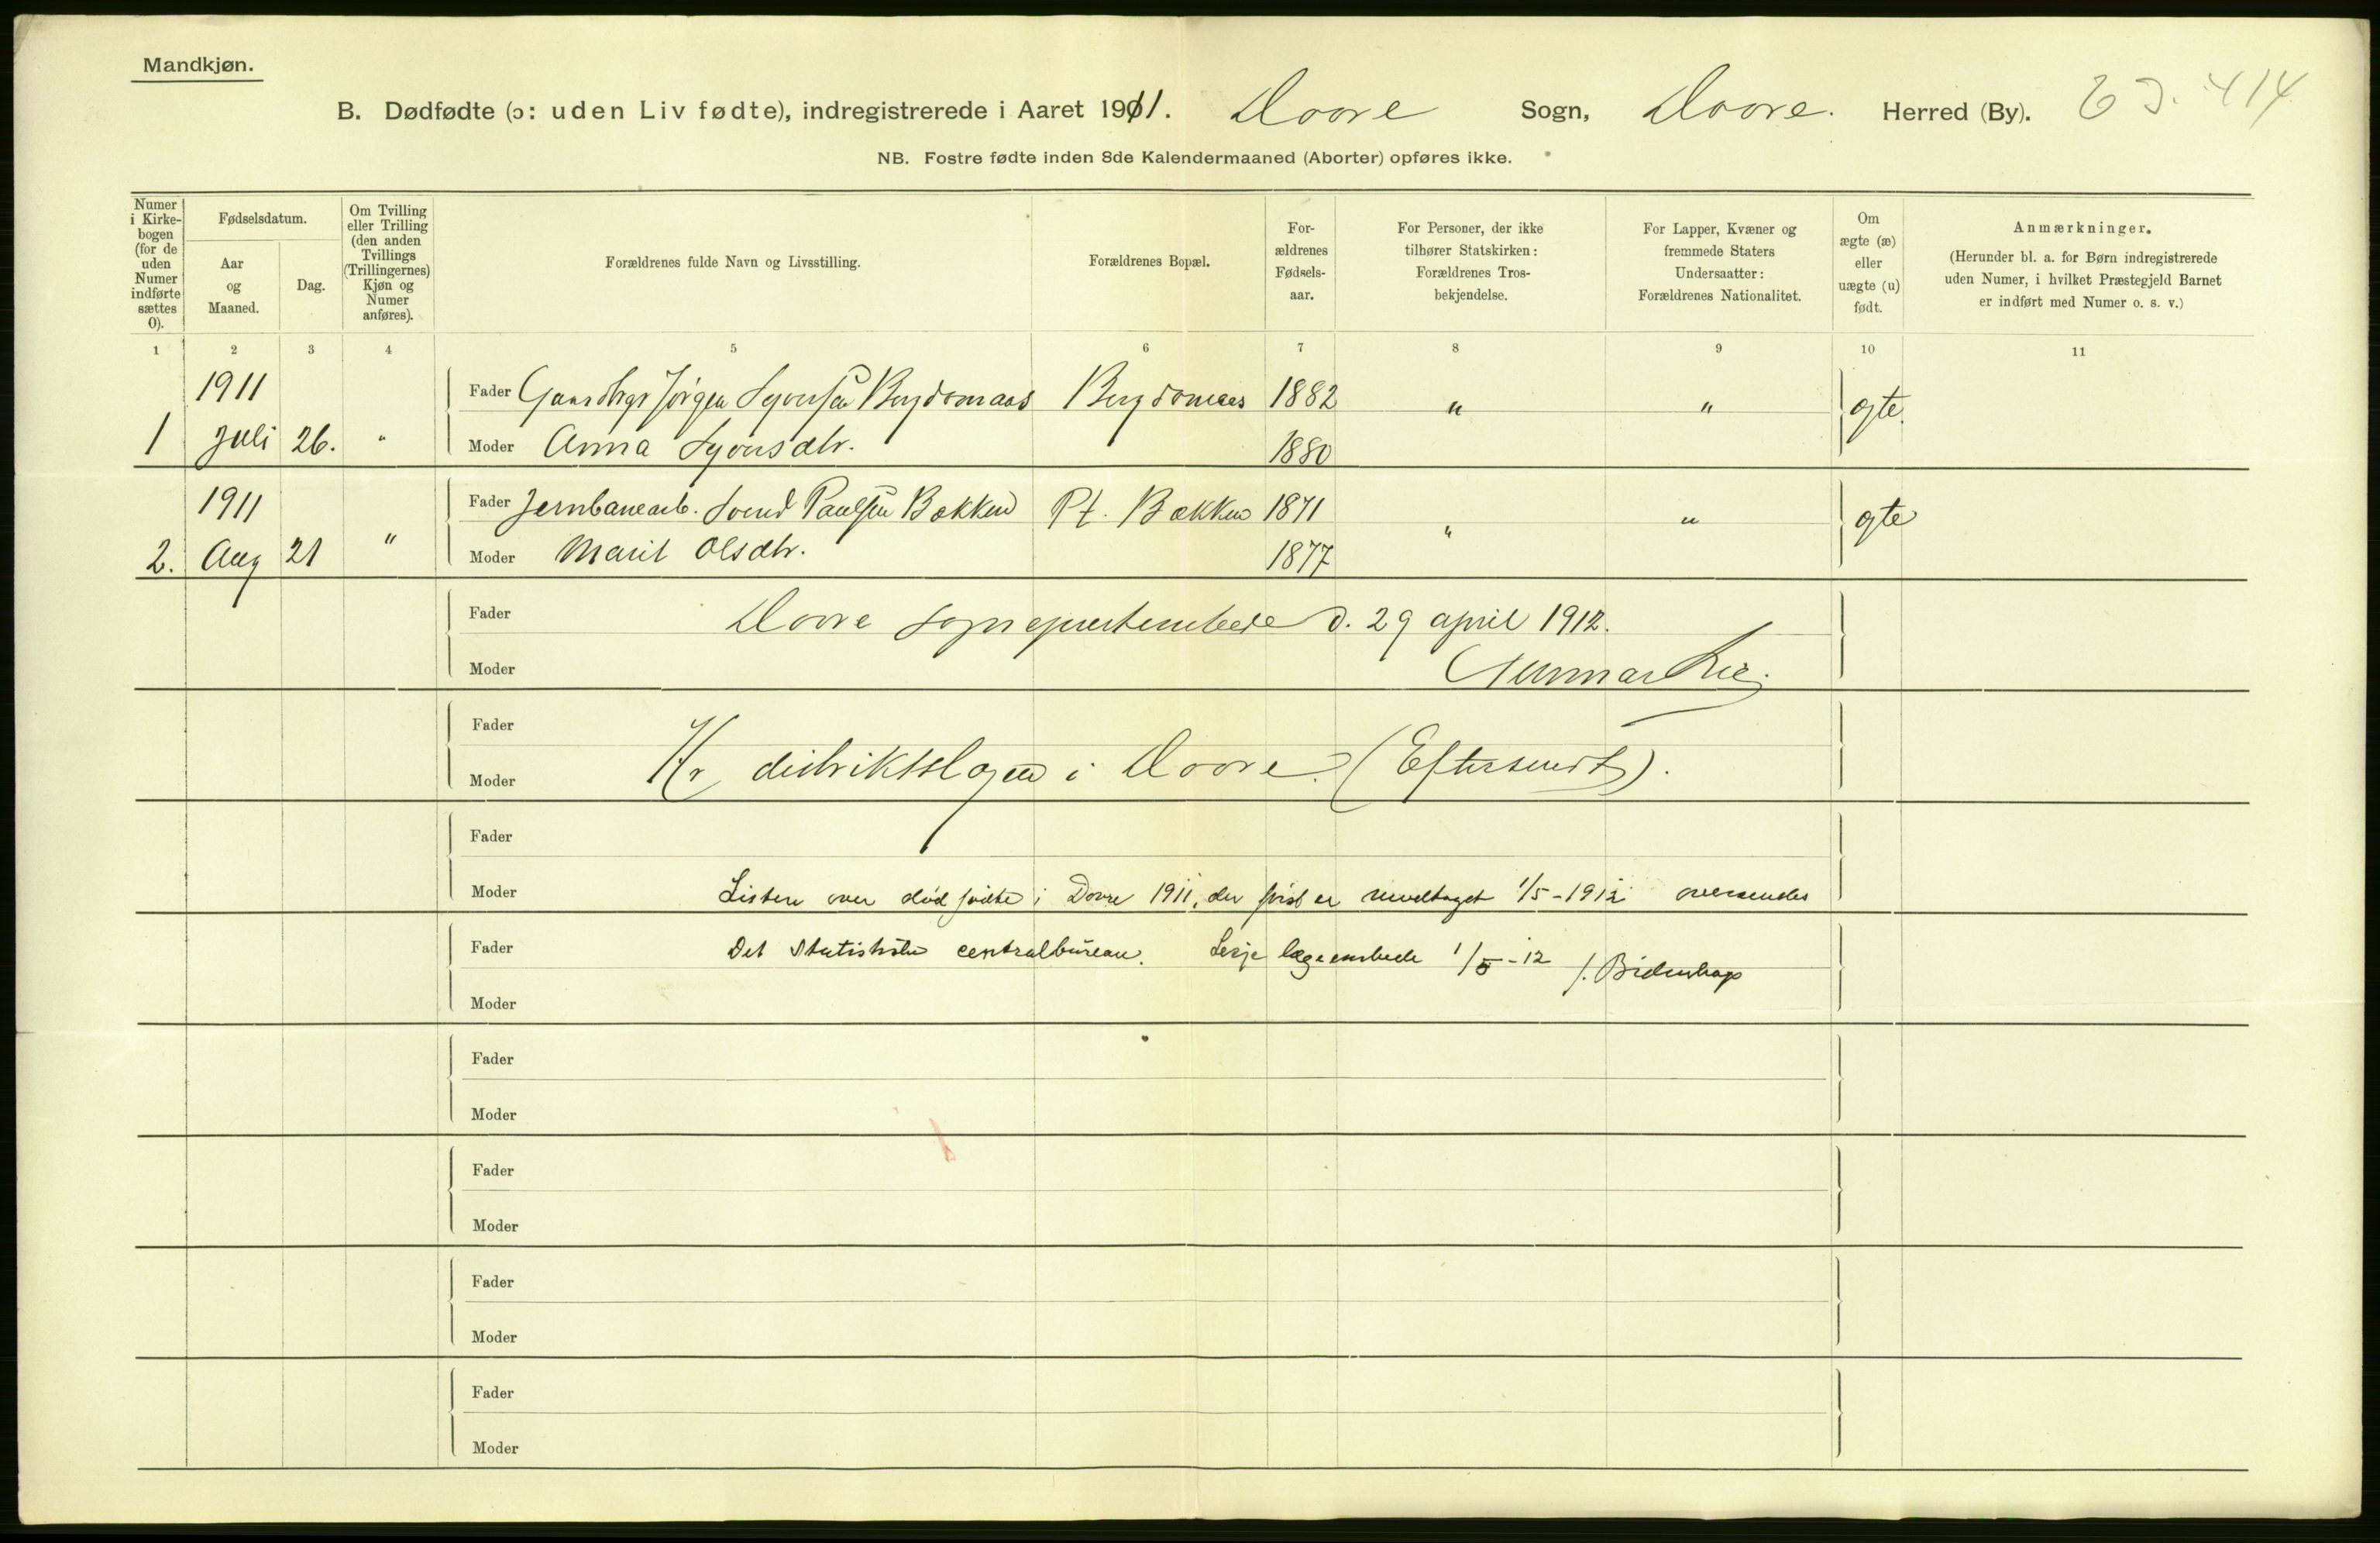 Mandkjøn.
B. Dødfødte (ɔ: uden Liv fødte), indregistrerede i Aaret 1911. Dovre Sogn, Dovre. Herred (By). 414
NB. Fostre fødte inden 8de Kalendermaaned (Aborter) opføres ikke.
Numer i Kirkebogen (for de uden Numer indførte sættes 0).
Fødselsdatum.
Aar og Maaned.
Dag.
Om Tvilling eller Trilling (den anden Tvillings (Trillingernes) Kjøn og Numer anføres).
Forældrenes fulde Navn og Livsstilling.
Forældrenes Bopæl.
Forældrenes Fødselsaar.
For Personer, der ikke tilhører Statskirken: Forældrenes Trosbekjendelse.
For Lapper, Kvæner og fremmede Staters Undersaatter: Forældrenes Nationalitet.
Om ægte (æ) eller uægte (u) født.
Anmærkninger.
(Herunder bl. a. for Børn indregistrerede uden Numer, i hvilket Præstegjeld Barnet er indført med Numer o. s. v.)
1 2 3 4 5 6 7 8 9 10 11
1911 Fader Gaardbgr Jørgen Syversen 1882 " " ægte
1 Juli 26. " Moder Anna Syversdtr. 1880
1911 Fader Jernbanearb. Svend Paulsen Bakken Pt. Bakken 1871 " " ægte
2. Aug 21 " Moder Marit Olsdtr. 1877
Fader Dovre sogneprestembede d. 29 april 1912.
Moder Gunnar
Fader
Moder Hr distriktslægen i Dovre. (Eftersendt).
Fader
Moder Listen over dødfødte i Dovre 1911, der først er modtaget 1/5-1912 oversendes
Fader Det statistiske centralbureau. Lesje lægeembede 1/5-12
Moder
Fader
Moder
Fader
Moder
Fader
Moder
Fader
Moder